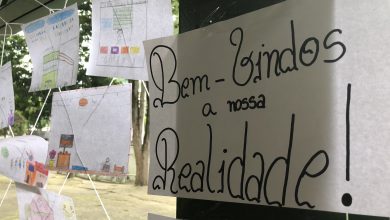 Bem-Vindos
a nossa
Realidade!